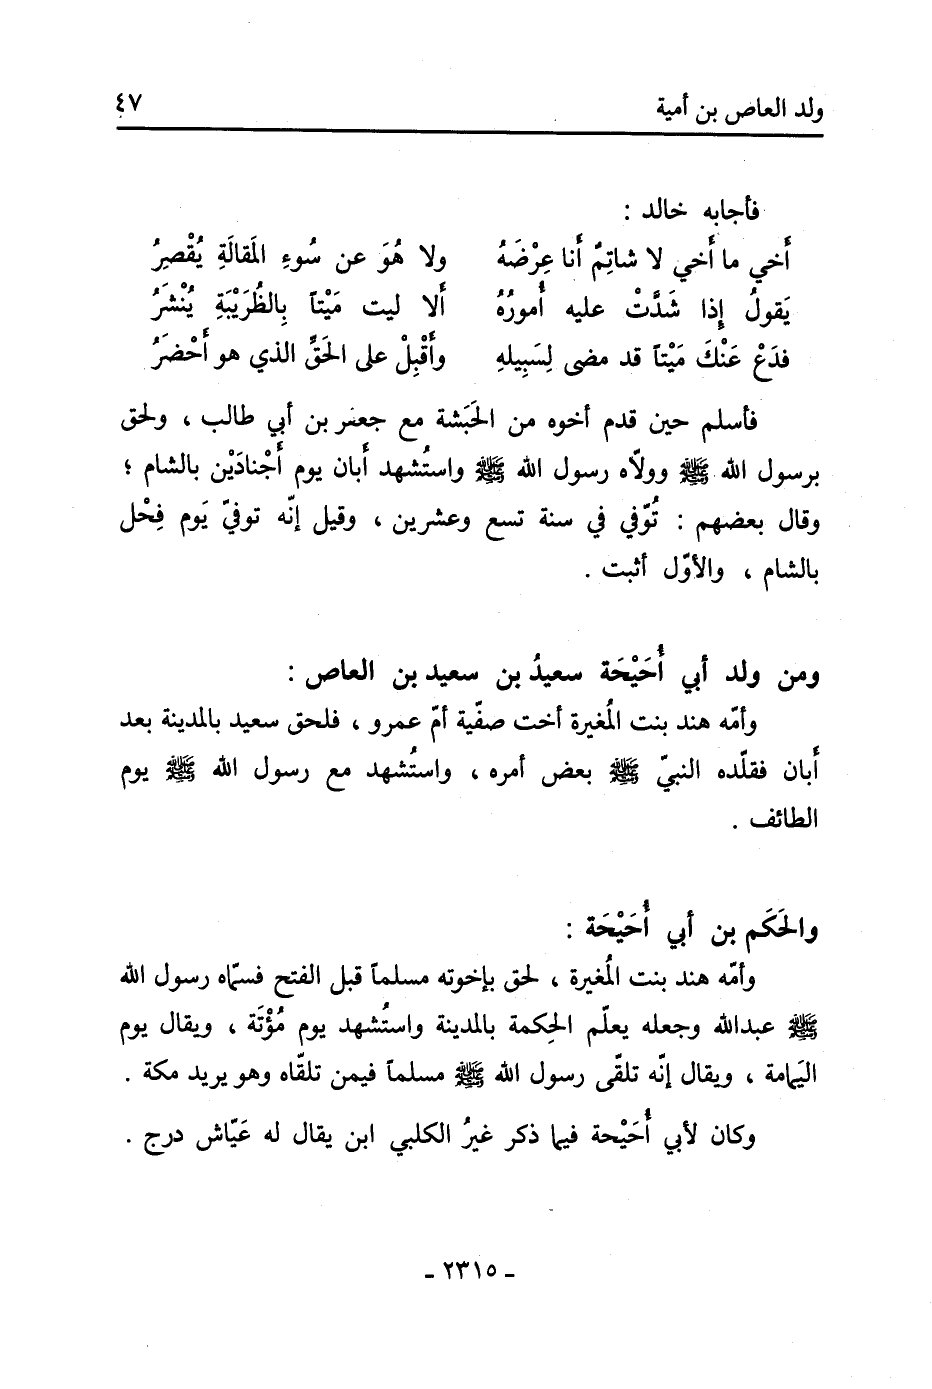 ولد العاص بن أمية ٤٧
فأجابه خالد :
أَخي ما أَخي لا شاتِمٌ أَنا عِرْضَهُ ولا هُوَ عن سُوءِ المَقالَةِ يُقْصِرُ
يَقولُ إِذا شَدَّتْ عليه أُمورُهُ أَلا ليت مَيْتاً بِالظُّرَيْبَةِ يُنْشَرُ
فدَعْ عَنْكَ مَيْتاً قد مضى لِسَبِيلهِ وأَقْبِلْ على الحَقِّ الذي هو أَحْضَرُ
فأسلم حين قدم أخوه من الحَبَشة مع جعفر بن أبي طالب ، ولحق
برسول الله ﷺ وولّاه رسول الله ﷺ واستُشهد أَبان يوم أَجْنادَيْن بالشام ؛
وقال بعضهم : تُوّفي في سنة تسع وعشرين ، وقيل إنّه توفيّ يَوم فِحْل
بالشام ، والأوّل أثبت .
ومن ولد أبي أُحَيْحَة سعيدُ بن سعيد بن العاص :
وأمّه هند بنت المُغيرة أخت صفّية أمّ عمرو ، فلحق سعيد بالمدينة بعد
أَبان فقلّده النبيّ ﷺ بعض أمره ، واستُشهد مع رسول الله ﷺ يوم
الطائف .
والحَكَم بن أبي أُحَيْحَة :
وأمّه هند بنت المُغيرة ، لحق بإخوته مسلماً قبل الفتح فسمّاه رسول الله
ﷺ عبدالله وجعله يعلّم الحِكمة بالمدينة واستُشهد يوم مُؤْتَة ، ويقال يوم
اليَمامة ، ويقال إنّه تلقّى رسول الله ﷺ مسلماً فيمن تلقّاه وهو يريد مكة .
وكان لأبي أُحَيْحة فيما ذكر غيرُ الكلبي ابن يقال له عَيّاش درج .
- ٢٣١٥ -